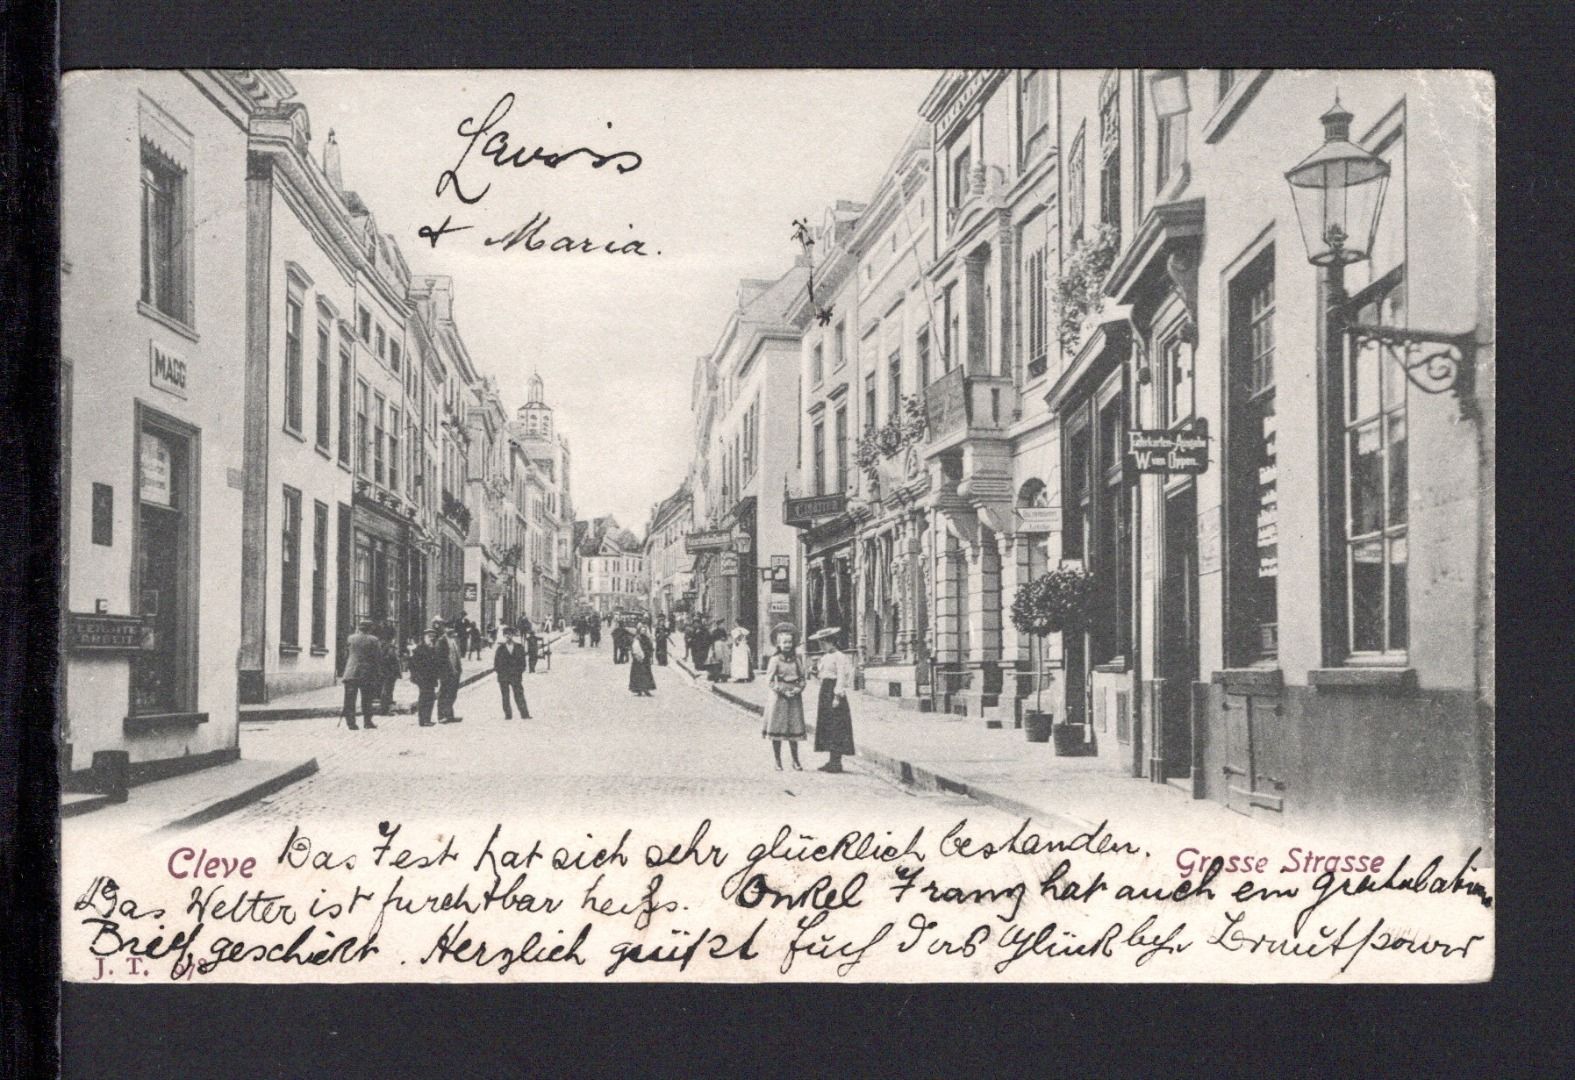 Louis
& Maria.
MAGGI
Fahrkarten-Ausgabe
W van Oppen.
MAGGI
Cleve
Grosse Strasse
Das Fest hat sich sehr glücklich bestanden.
Das Wetter ist furchtbar heiss. Onkel Franz hat auch ein Gratulations
Brief geschickt. Herzlich grüßt Euch das glückliche Brautpaar
J. T.